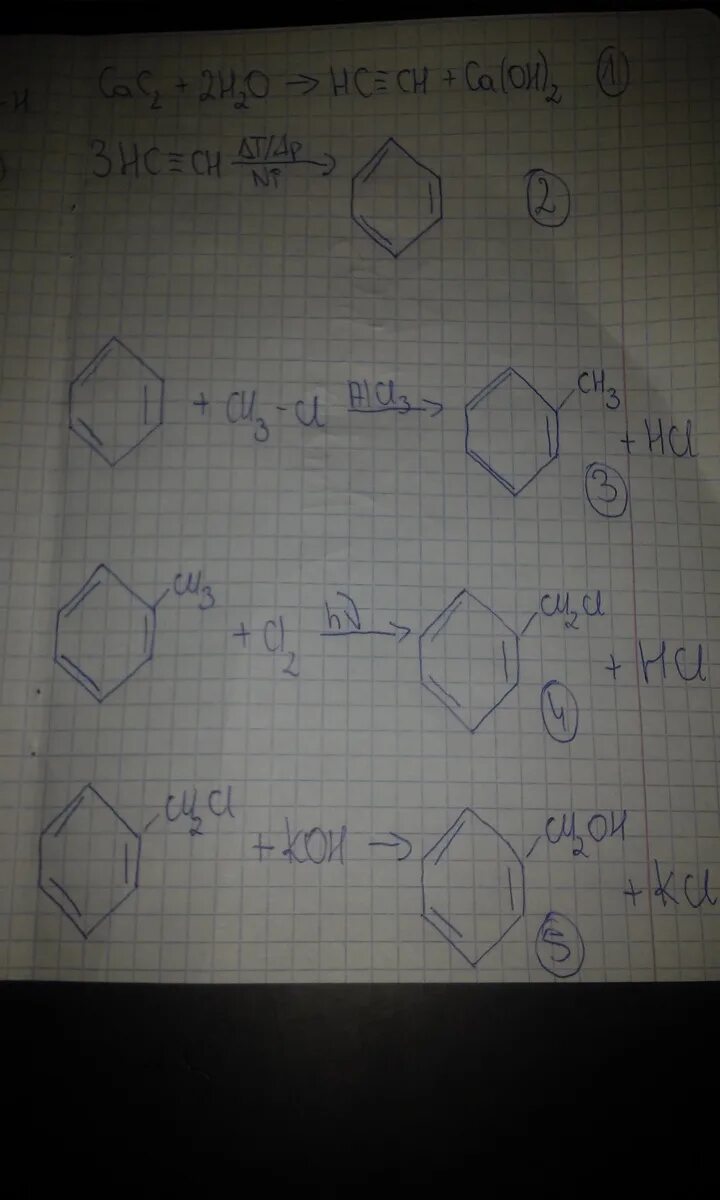 CaC₂ + 2H₂O → HC≡CH + Ca(OH)₂ ①
3HC≡CH ΔT/Δp Ni → ②
+ CH₃-Cl AlCl₃ → CH₃ + HCl ③
CH₃ + Cl₂ hλ → CH₂Cl + HCl ④
CH₂Cl + KOH → CH₂OH + KCl ⑤